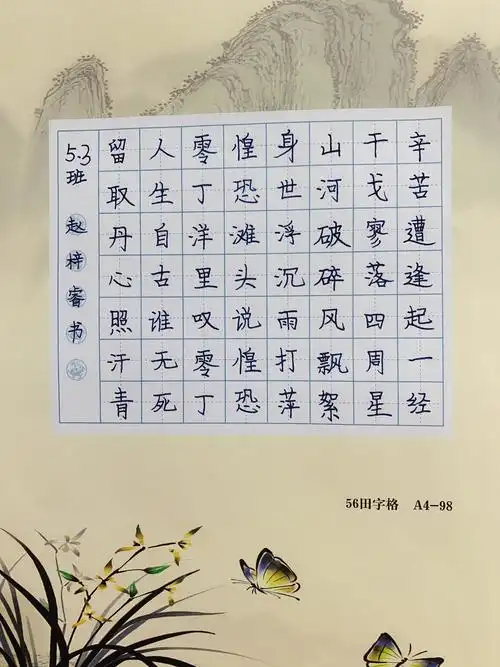 辛苦遭逢起一经
干戈寥落四周星
山河破碎风飘絮
身世浮沉雨打萍
惶恐滩头说惶恐
零丁洋里叹零丁
人生自古谁无死
留取丹心照汗青
5.3班 赵梓睿书
56田字格 A4-98